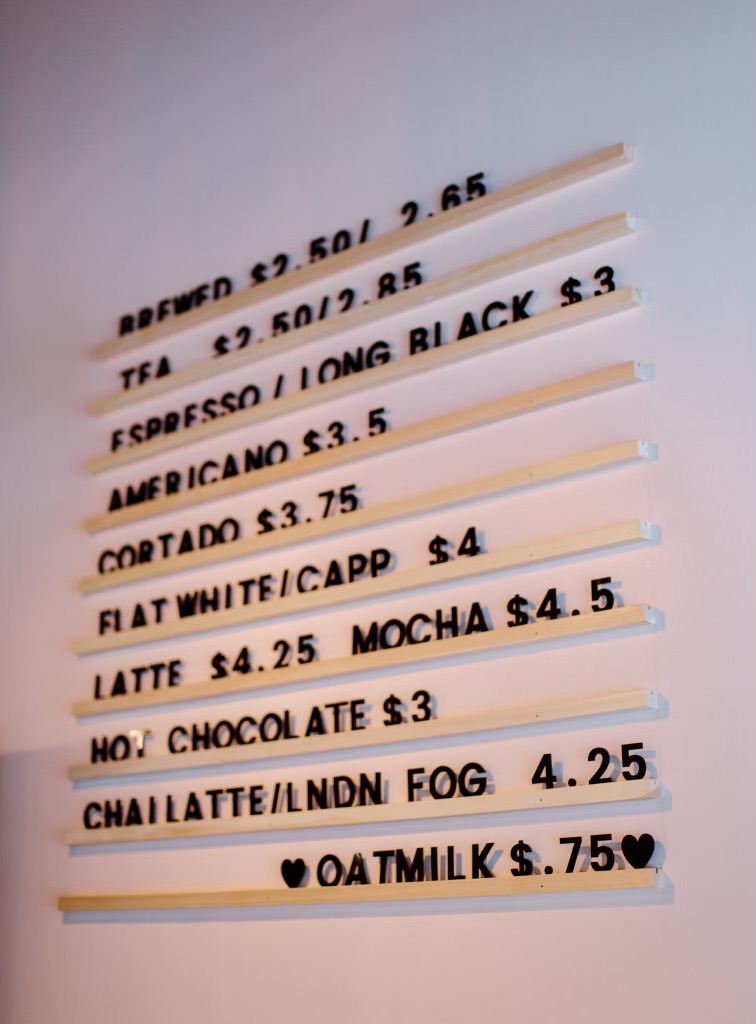 BREWED $2.50/ 2.65
TEA $2.50/2.85
ESPRESSO / LONG BLACK $3
AMERICANO $3.5
CORTADO $3.75
FLAT WHITE/CAPP $4
LATTE $4.25 MOCHA $4.5
HOT CHOCOLATE $3
CHAI LATTE/LNDN FOG 4.25
♥OATMILK $.75♥